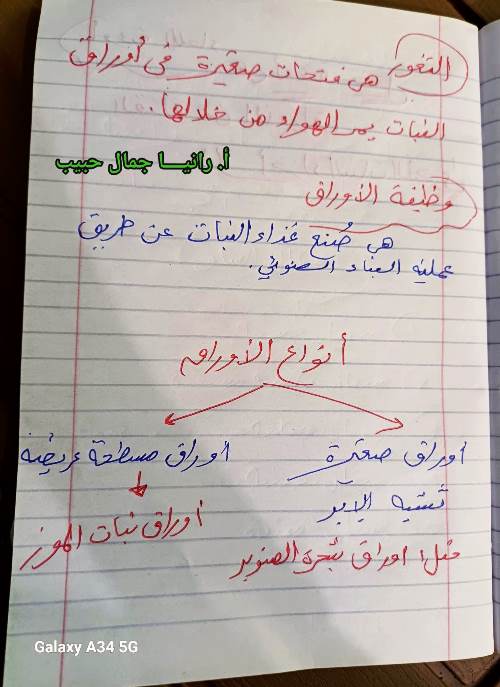 الثغور هي فتحات صغيرة في أوراق
النبات يمر الهواء من خلالها.
أ. رانيــا جمال حبيب
وظيفة الأوراق
هي صُنع غذاء النبات عن طريق
عملية البناء الضوئي.
أنواع الأوراق
اوراق صغيرة
اوراق مسطحة عريضة
تشبه الإبر
اوراق نبات الموز
مثل: اوراق شجرة الصنوبر
Galaxy A34 5G